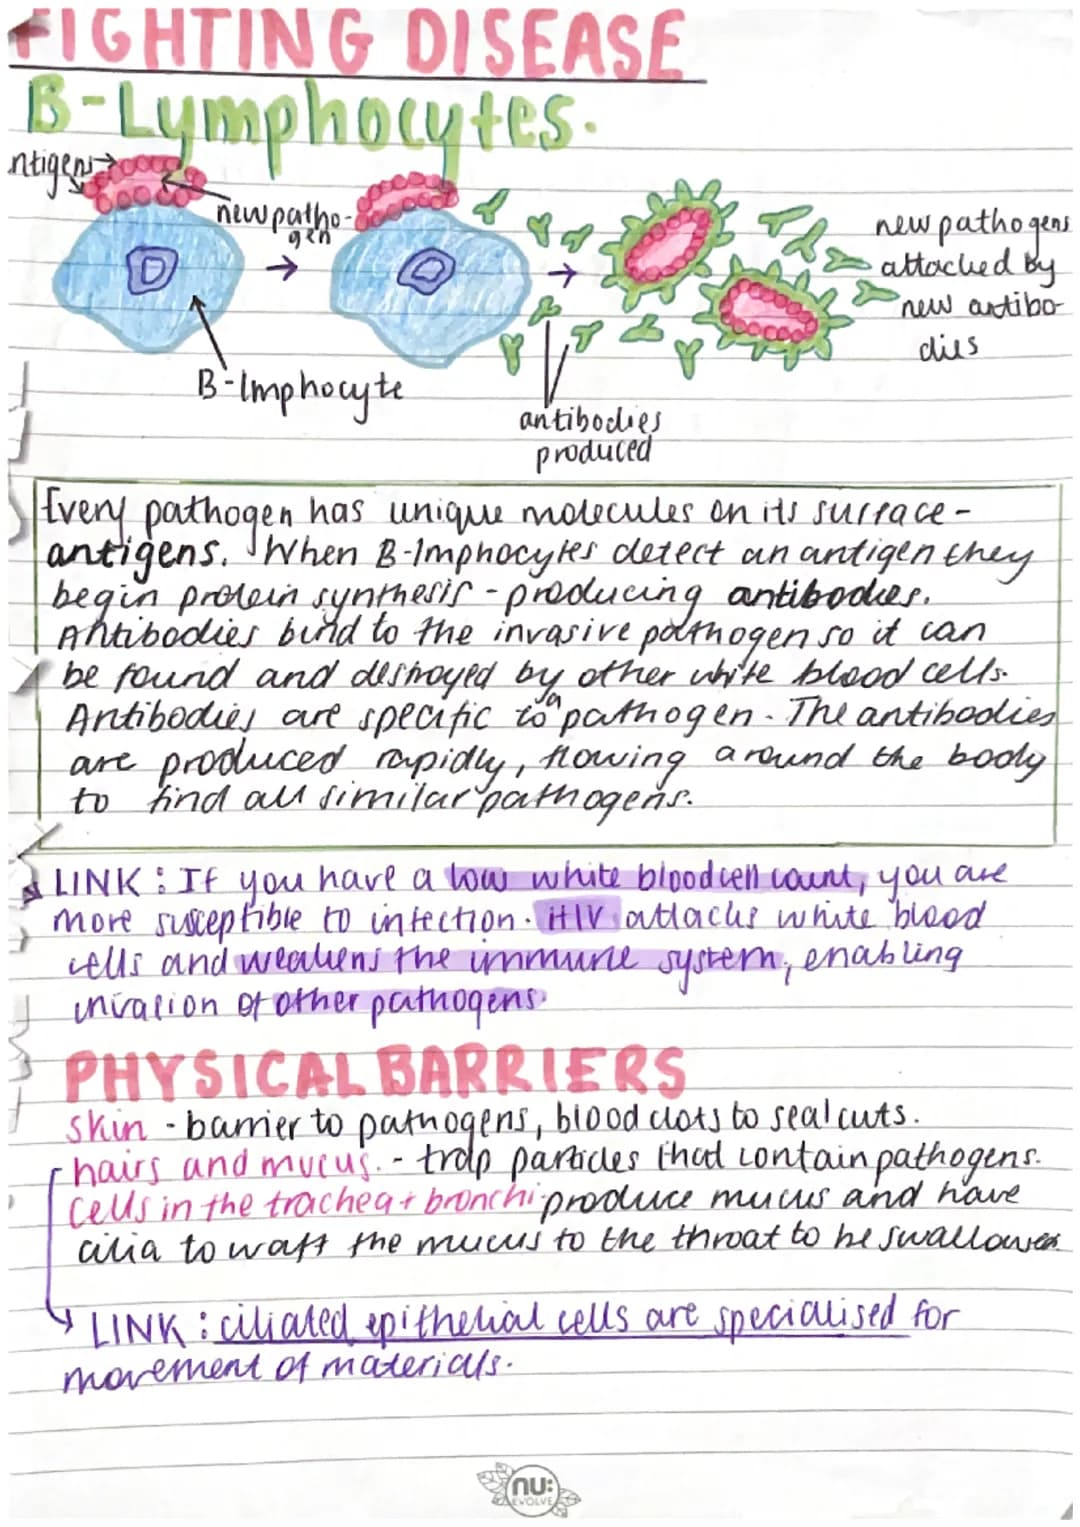 FIGHTING DISEASE
B-Lymphocytes.
ntigens
new patho-
gen
B-lmphocyte
antibodies
produced
new pathogens
attacked by
new antibo-
dies
Every pathogen has unique molecules on its surface-
antigens. When B-lmphocytes detect an antigen they
begin protein synthesis - producing antibodies.
Antibodies bind to the invasive pathogen so it can
be found and destroyed by other white blood cells.
Antibodies are specific to a pathogen. The antibodies
are produced rapidly, flowing around the body
to find all similar pathogens.
LINK: If you have a low white blood cell count, you are
more susceptible to infection. HIV attacks white blood
cells and weakens the immune system, enabling
invasion of other pathogens.
PHYSICAL BARRIERS
skin - barrier to pathogens, blood clots to seal cuts.
hairs and mucus. - trap particles that contain pathogens.
cells in the trachea + bronchi - produce mucus and have
cilia to waft the mucus to the throat to be swallowed.
LINK: ciliated epithelial cells are specialised for
movement of materials.
nu:
EVOLVE